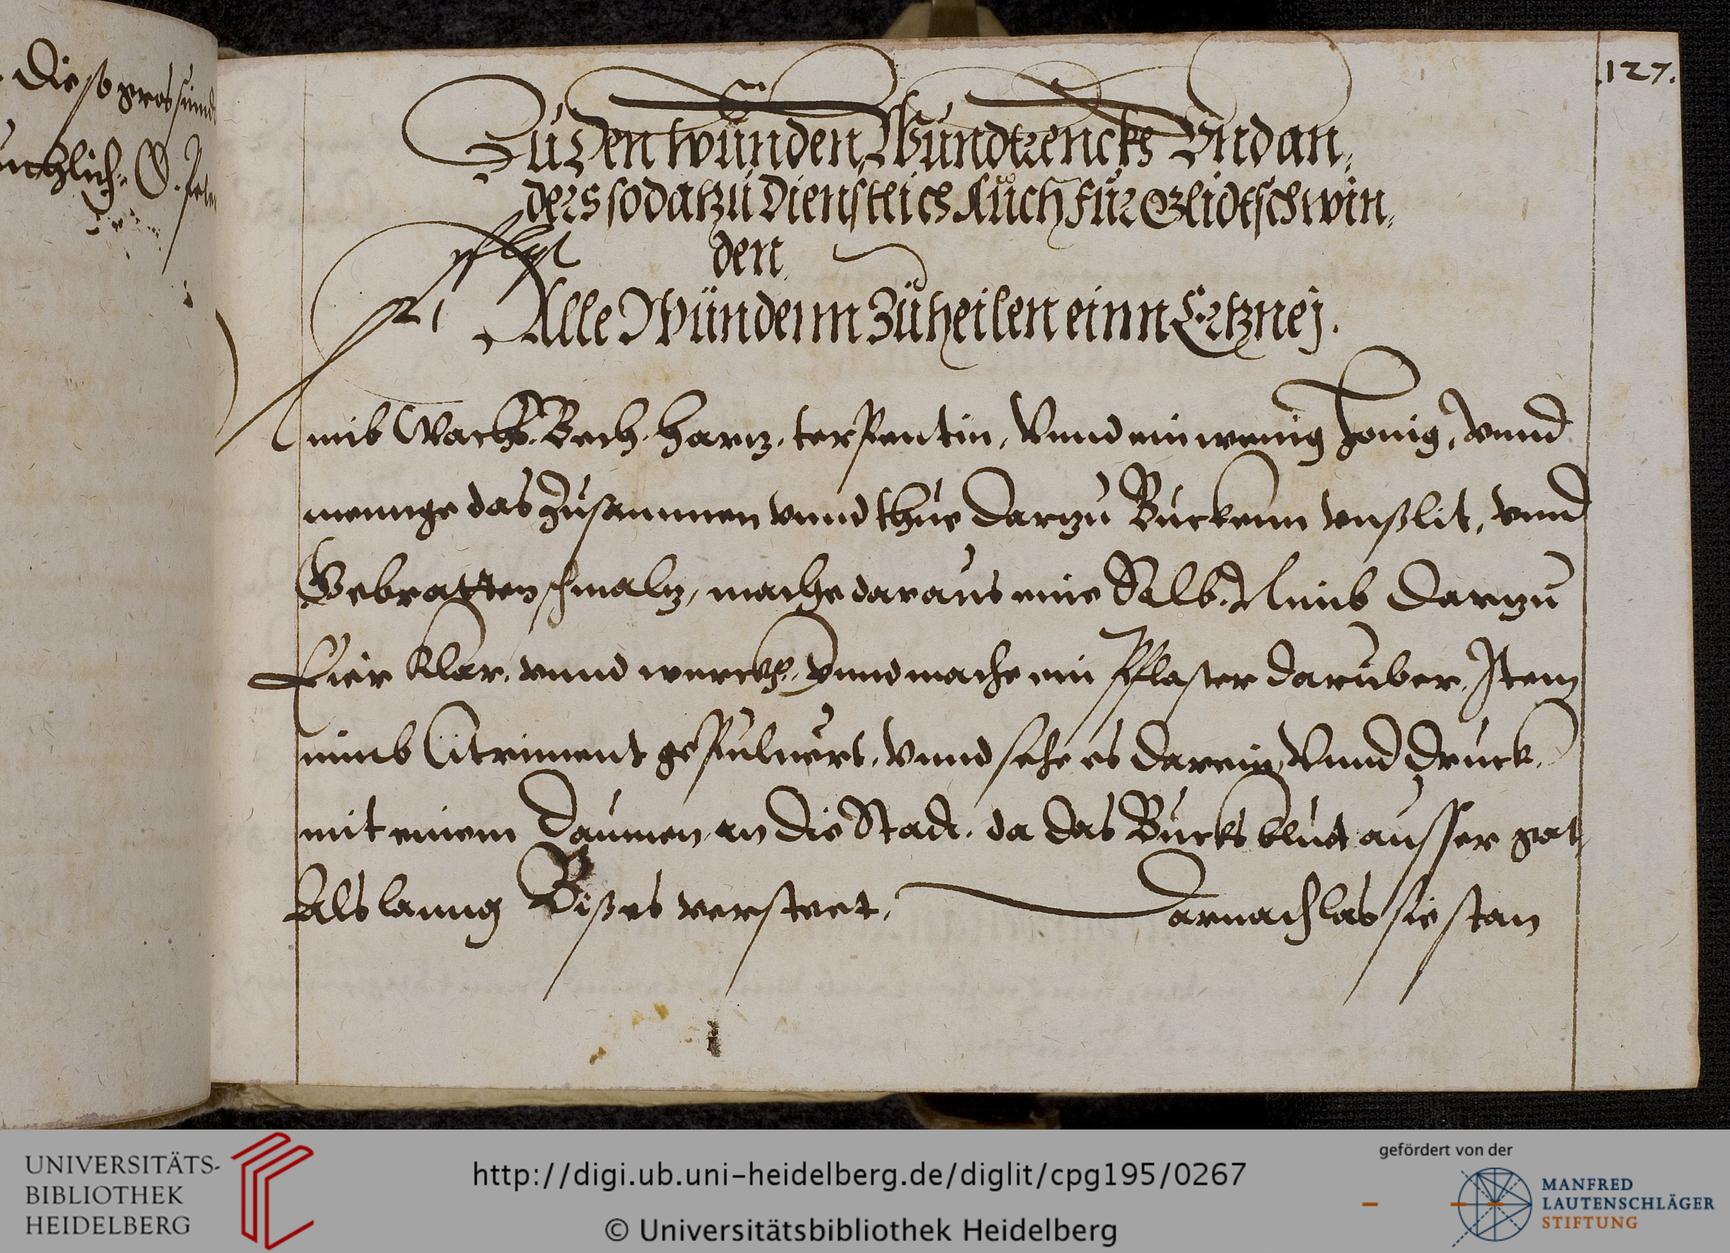 Die so gros sind
S.
127.
Zu den wunden Wundtrencks Vnd an,
ders so dartzu dienstlich Auch fur Glidtschwin,
den
pflgl
Alle Wündenn Zu heilen einn Ertznej.
Nimb Wachs. Bech. Hartz. terpentin, Vnnd ein wenig Honig, Vnnd
mennge das Zusammen vnnd thue dartzu Buckenn vnßlit, vnnd
Gebratten schmaltz, mache daraus eine Salb. Nimb dartzu
Eier Klar. vnnd werckh. Vnnd mache ein Pflaster daruber. Item
nimb Atriment gepuluert, Vnnd sehe es darein, Vnnd druck
mit einem daumen an die Stadt. da das Bucks blut ausser gat
Als lanng Biß es versteet, Darnach las sie stan
UNIVERSITÄTS-
BIBLIOTHEK
HEIDELBERG
http://digi.ub.uni-heidelberg.de/diglit/cpg195/0267
© Universitätsbibliothek Heidelberg
gefördert von der
MANFRED
LAUTENSCHLÄGER
STIFTUNG